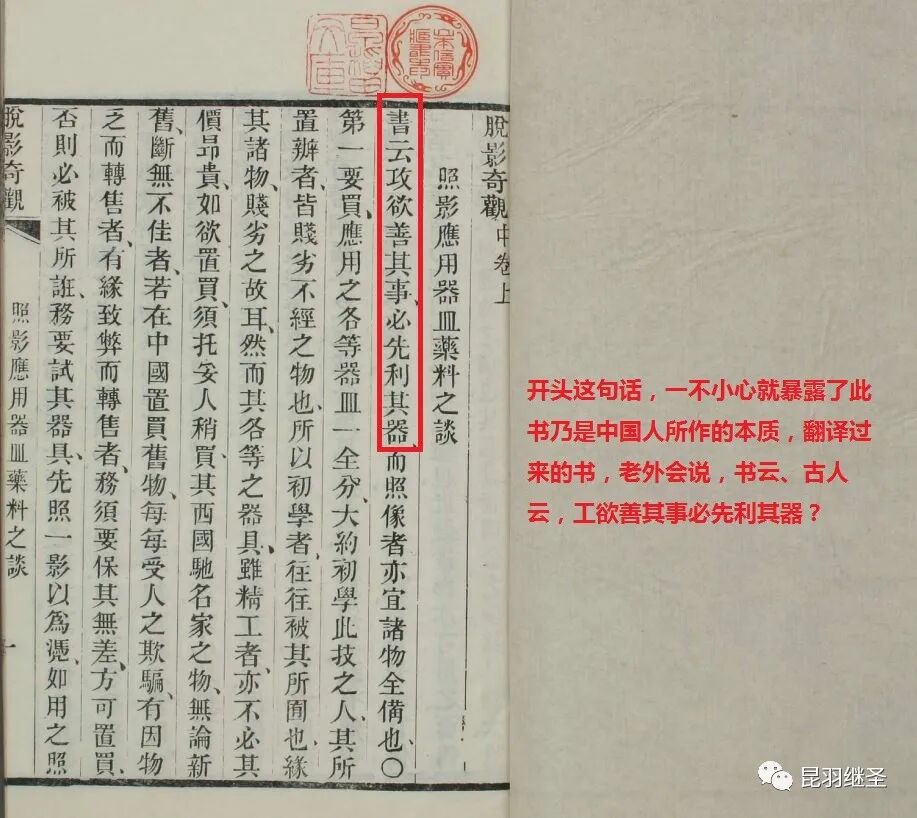 脫影奇觀中卷上
照影應用器皿藥料之談
書云攻欲善其事、必先利其器、而照像者亦宜諸物全備也、〇
第一要買、應用之各等器皿一全分、大約初學此技之人、其所
置辦者、皆賤劣不經之物也、所以初學者、往往被其所囿也、緣
其諸物、賤劣之故耳、然而其各等之器具、雖精工者、亦不必其
價昂貴、如欲置買、須托妥人稍買、其西國馳名家之物、無論新
舊、斷無不佳者、若在中國置買舊物、每每受人之欺騙、有因物
乏而轉售者、有緣致弊而轉售者、務須要保其無差、方可置買、
否則必被其所誑、務要試其器具、先照一影以爲憑、如用之照
脫影奇觀 照影應用器皿藥料之談 一
开头这句话，一不小心就暴露了此
书乃是中国人所作的本质，翻译过
来的书，老外会说，书云、古人
云，工欲善其事必先利其器？
昆羽继圣